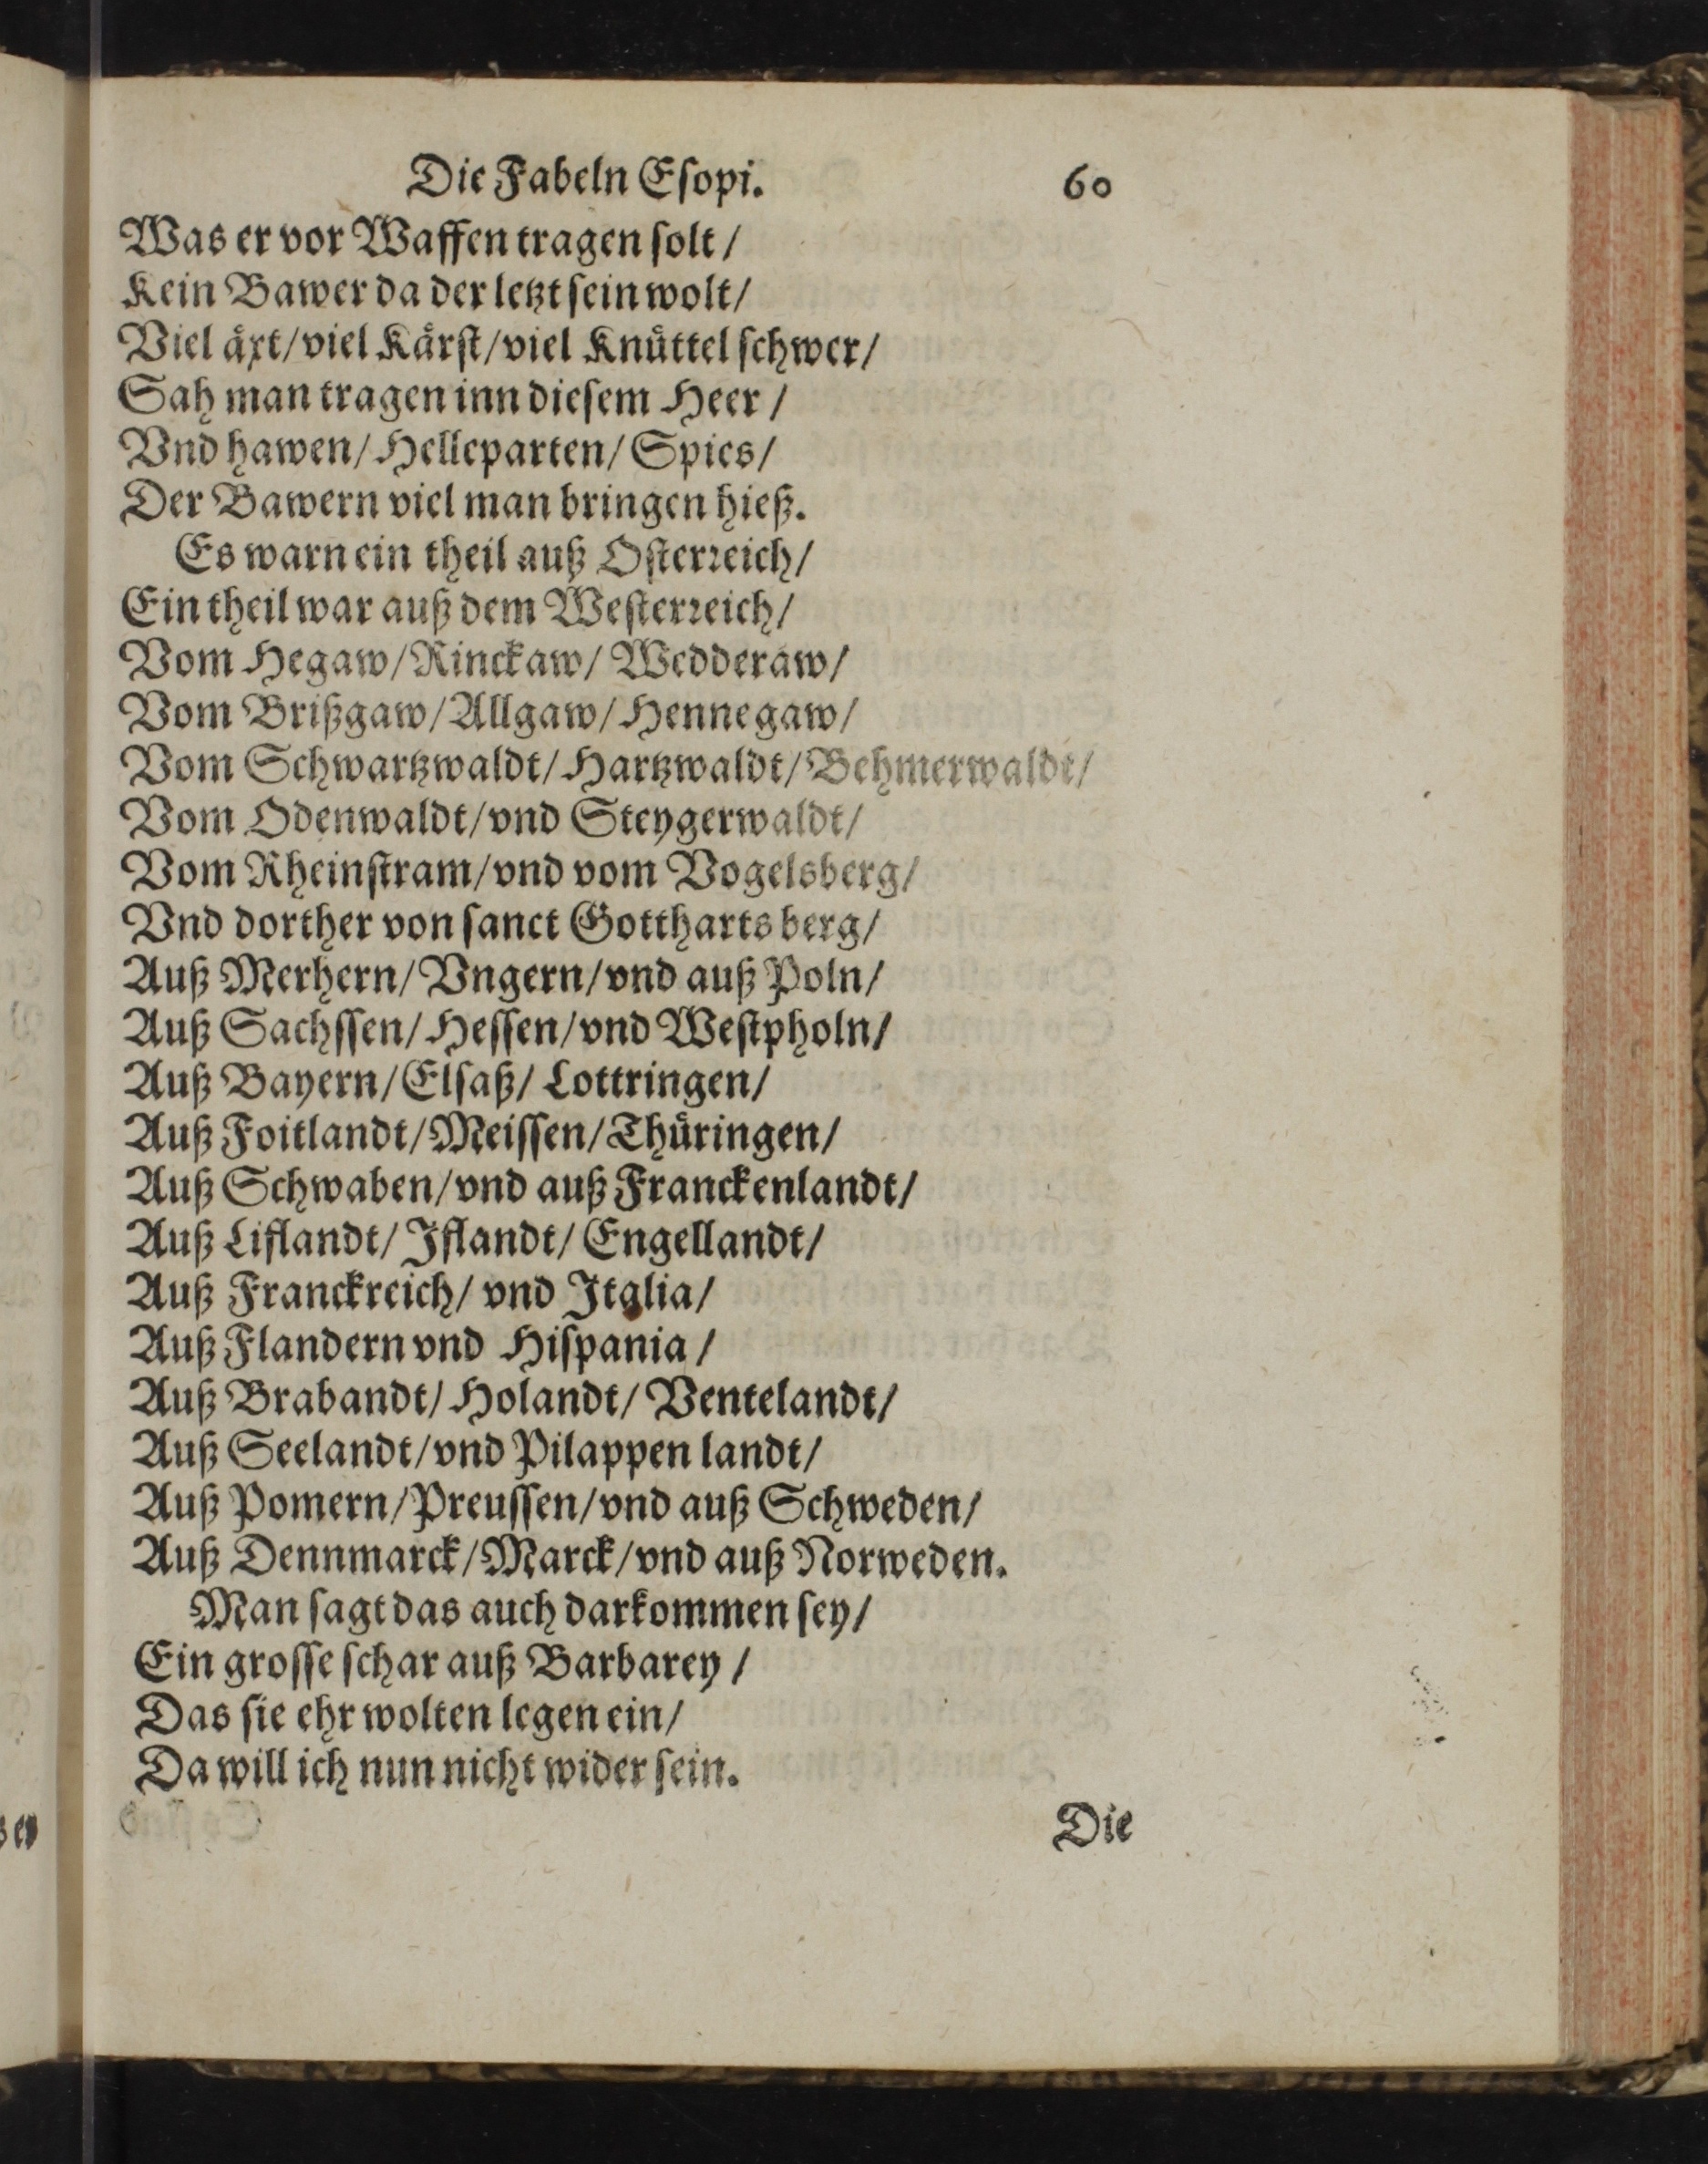 Die Fabeln Eſopi. 60
Was er vor Waffen tragen ſolt /
Kein Bawer da der letzt ſein wolt/
Viel aͤxt/viel Kaͤrſt/viel Knuͤttel ſchwer/
Sah man tragen inn dieſem Heer /
Vnd hawen/ Helleparten/ Spies/
Der Bawern viel man bringen hieß.
Es warn ein theil auß Oſterꝛeich/
Ein theil war auß dem Weſterꝛeich/
Vom Hegaw/Rinckaw/ Wedderaw/
Vom Brißgaw/Allgaw/Hennegaw/
Vom Schwartzwaldt/Hartzwaldt/Behmerwaldt/
Vom Odenwaldt/vnd Steygerwaldt/
Vom Rheinſtram/vnd vom Vogelsberg/
Vnd dorther von ſanct Gottharts berg/
Auß Merhern/ Vngern/vnd auß Poln/
Auß Sachſſen/Heſſen/vnd Weſtpholn/
Auß Bayern/Elſaß/ Lottringen/
Auß Foitlandt/Meiſſen/Thuͤringen/
Auß Schwaben/vnd auß Franckenlandt/
Auß Liflandt/ Iflandt/ Engellandt/
Auß Franckreich/ vnd Italia/
Auß Flandern vnd Hiſpania /
Auß Brabandt/ Holandt/ Ventelandt/
Auß Seelandt/vnd Pilappen landt/
Auß Pomern/Preuſſen/vnd auß Schweden/
Auß Dennmarck/Marck/vnd auß Norweden.
Man ſagt das auch darkommen ſey/
Ein groſſe ſchar auß Barbarey /
Das ſie ehr wolten legen ein/
Da will ich nun nicht wider ſein.
Die